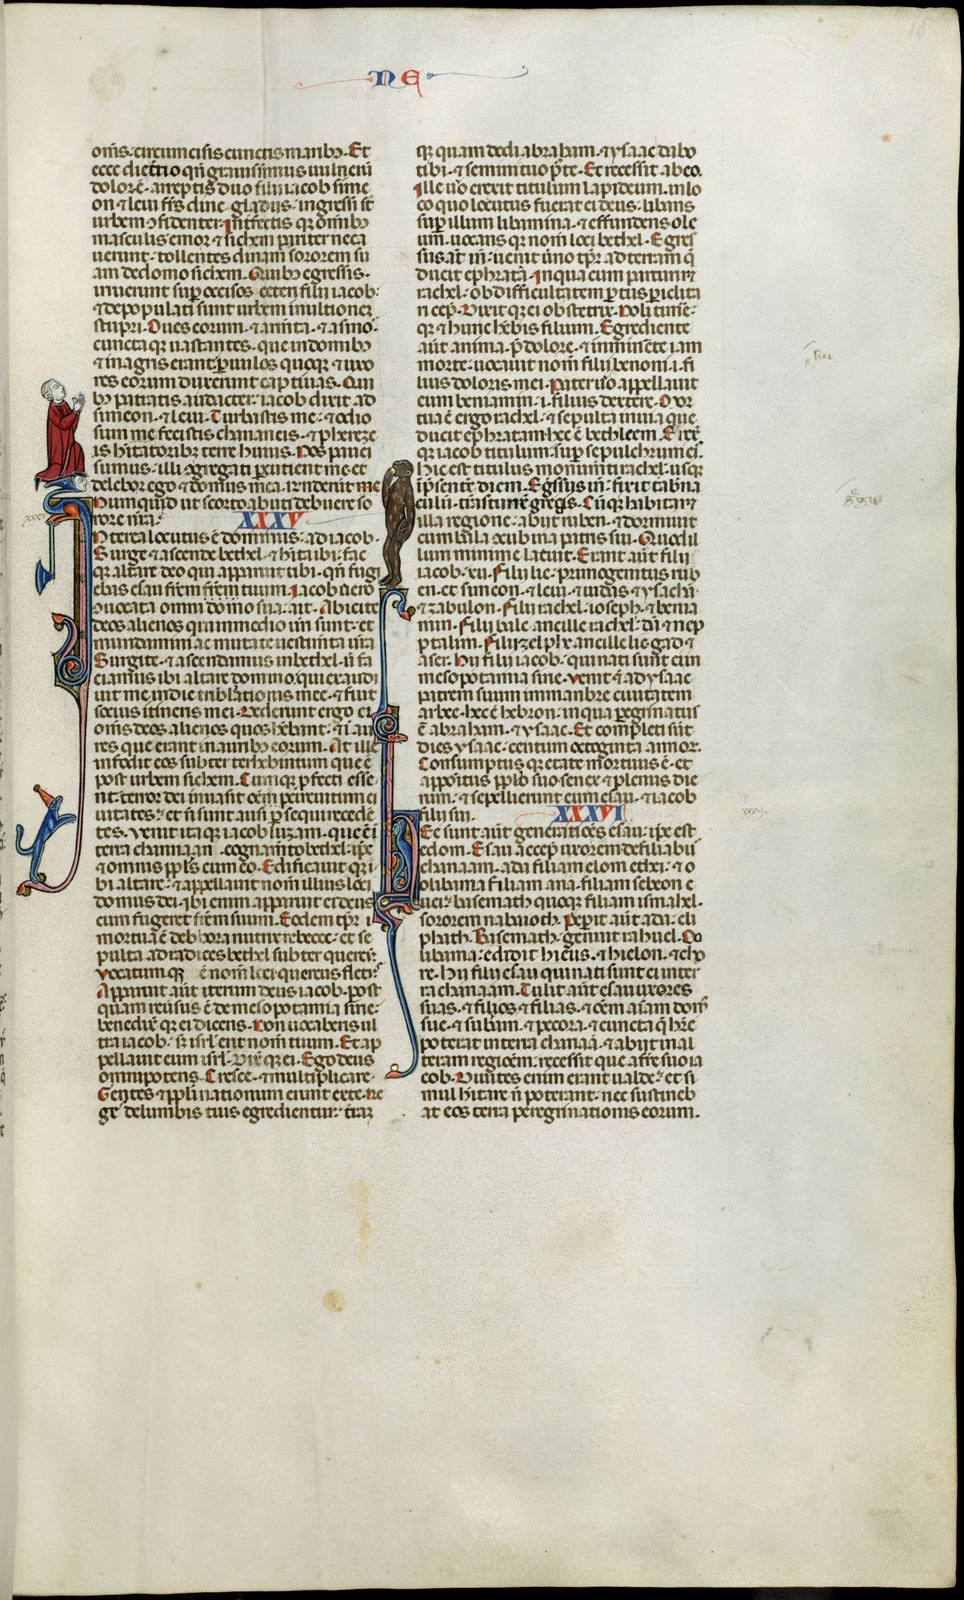 NE
om̅s · circumcisis cunctis maribꝰ · Et
ecce die tr̅io qn̅ grauissimus uulneru̅
dolor e̅ · arreptis duo filii iacob sime
on ⁊ leui fr̅s dine · gladiis · ingressi st̅
urbem ꝯfidenter · Interfectis qꝫ om̅ibꝰ
masculis emor ⁊ sichem pariter neca
uerunt · tollentes dinam sororem su
am de domo sichem · Quibꝰ egressis ·
irruerunt sup̅ occisos ceteri filii iacob ·
⁊ depopulati sunt urbem in ultionem
stupri · Oues eorum · ⁊ armta · ⁊ asinos
cunctaqꝫ uastantes · que in domibꝰ
⁊ in agris erant · paruulos quoqꝫ ⁊ uxo
res eorum duxerunt captiuas · Qui
bꝰ patratis audacter · iacob dixit ad
simeon · ⁊ leui · Turbastis me · ⁊ odio
sum me fecistis chananeis · ⁊ phereze
is hitatoribꝫ terre huius · Nos pauci
sumus · illi ꝯgregati percutient me · et
delebor ego ⁊ domus mea · Rn̅derunt
Numquid ut scorto abuti debuere so
rore nr̅a ·
XXXV
Interea locutus e̅ dominus · ad iacob ·
Surge ⁊ ascende bethel · ⁊ hita ibi · fac
qꝫ altare deo qui apparuit tibi · qn̅ fugi
ebas esau fr̅em tuum · Iacob uero
ꝯuocata omni domo sua · ait · Abicite
deos alienos qui in medio uri sunt · et
mundamini ac mutate uestimta ur̅a
Surgite · ⁊ ascendamus in bethel · ut fa
ciamus ibi altare domino · qui exaudi
uit me in die tribl̅ationis mee · ⁊ fuit
socius itineris mei · Dederunt ergo ei
om̅s deos alienos quos he̅bant · ⁊ in au
res que erant in auribꝰ eorum · At ille
infodit eos subter terebintum que e̅
post urbem sichem · Cumqꝫ profecti esse
nt · terror dei inuasit om̅s per circuitum ci
uitates · ⁊ n̅ sunt ausi persequi recede̅
tes · Venit itaqꝫ iacob luzam · que e̅ i̅
terra chanaan · cognom̅to bethel · ip̅e
⁊ omnis ppl̅s cum eo · Edificauit qꝫ i
bi altare · ⁊ appellauit nom̅ illius loci
domus dei · ibi enim apparuit ei deus
cum fugeret fr̅em suum · Eodem tp̅r i
mortua e̅ debbora nutrix rebecce · et se
pulta ad radices bethel subter quercu̅
Vocatum qꝫ e̅ nom̅ loci quercus fletꝰ
Apparuit aut̅ iterum deus iacob · post
quam reu̅sus e̅ de mesopotamia sirie ·
benedix̅ qꝫ ei dicens · Non uocaberis ul
tra iacob · sꝫ isrl̅ erit nom̅ tuum · Et ap
pellauit eum isrl̅ · Dix̅ qꝫ ei · Ego deus
omnipotens · Cresce · ⁊ multiplicare ·
Gentes ⁊ ppl̅i nationum erunt ex te · re
ges de lumbis tuis egredientur · terra̅
qꝫ quam dedi abraham · ⁊ ysaac dabo
tibi · ⁊ semini tuo p̅t te · Et recessit ab eo ·
Ille u̅o erexit titulum lapideum · in lo
co quo locutus fuerat ei deus · libans
sup̅ illum libamina · ⁊ effundens ole
um̅ · uocans qꝫ nom̅ loci bethel · Egres
sus aut̅ in̅ · uenit u̅no tp̅r ad terram q̅
ducit ephrata̅ · In qua cum parturir̅
rachel · ob difficultatem partus periclita
ri cep̅ · Dixit qꝫ ei obstetrix · Noli time̅ ·
qꝫ ⁊ hunc he̅bis filium · Egrediente
aut̅ anima p̅ dolore · ⁊ imminente iam
morte · uocauit nom̅ filii benoni · i · fi
lius doloris mei · Pater u̅o appellauit
eum beniamin · i · filius dextere · Mor
tua e̅ ergo rachel · ⁊ sepulta in uia que
ducit ephratam · hec e̅ bethleem · Erex̅
qꝫ iacob titulum · sup̅ sepulchrum eius ·
hic est titulus monim̅ti rachel · usqꝫ
ip̅sente̅ diem · Egressus in̅ · fixit tab̅na
culu̅ · trans turre̅ gregis · Cu̅qꝫ habitar̅
illa regione · abiit ruben · ⁊ dormiuit
cum bala ꝯcubina patris sui · Quod il
lum minime latuit · Erant aut̅ filii
iacob · xii · Filii lie · primogenitus rub
en · et simeon · ⁊ leui · ⁊ iudas · ⁊ ysachar
⁊ zabulon · Filii rachel · ioseph · ⁊ benia
min · Filii bale · ancille rachel · da̅ ⁊ nep
ptalim · Filii zelphe · ancille lie · gad · ⁊
aser · Hii filii iacob · qui nati sunt ei in
mesopotamia sirie · Venit ⁊ ad ysaac
patrem suum in manbre ciuitatem
arbee · hec e̅ hebron · in qua peregrinatus
e̅ abraham · ⁊ ysaac · Et completi su̅t
dies ysaac · centum octoginta annor ·
Consumptus qꝫ etate mortuus e̅ · et
appositus pplo suo senex · ⁊ plenus die
rum · ⁊ sepellierunt eum esau · ⁊ iacob
filii sui ·
XXXVI
Hec sunt aut̅ generatio̅es esau · ip̅e est
edom · Esau accep̅ uxorem de filiabꝰ
chanaam · ada filiam elom ethei · ⁊ o
olibama filiam ana · filiam sebeon e
uei · basemath quoqꝫ filiam ismahel ·
sororem nabaioth · Peperit aut̅ ada · eli
phath · Basemath · genuit rahuel · Oo
libama · edidit hieus · ⁊ hielon · ⁊ cho
re · Hii filii esau qui nati sunt ei in ter
ra chanaam · Tulit aut̅ esau uxores
suas · ⁊ filios · ⁊ filias · ⁊ om̅em ai̅am domꝰ
sue · ⁊ subam · ⁊ pecora · ⁊ cuncta q̅ hr̅e
poterat in terra chanaa̅ · ⁊ abiit in al
teram regio̅em · recessit que a fr̅e suo ia
cob · Diuites enim erant ualde · et si
mul hitare n̅ poterant · nec sustineb
at eos terra peregrinationis eorum ·